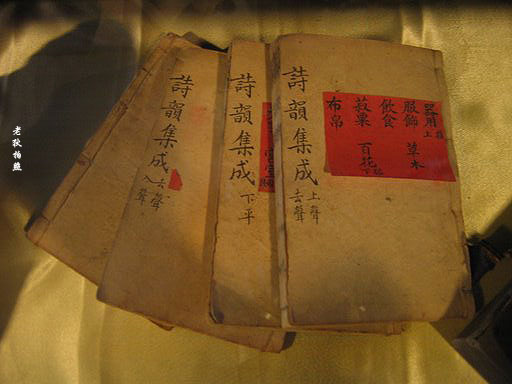 器用上
服飾 草木
飲食
菽粟 百花下
布帛
詩韻集成
上聲
去聲
詩韻集成
下平
詩韻集成
去聲
入聲
老狄拍照